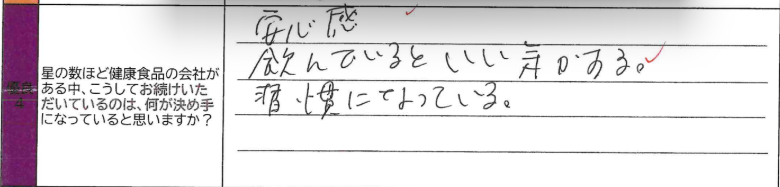 星の数ほど健康食品の会社が
ある中、こうしてお続けいた
だいているのは、何が決め手
になっていると思いますか？
安心感
飲んでいるといい気がする。
習慣になっている。